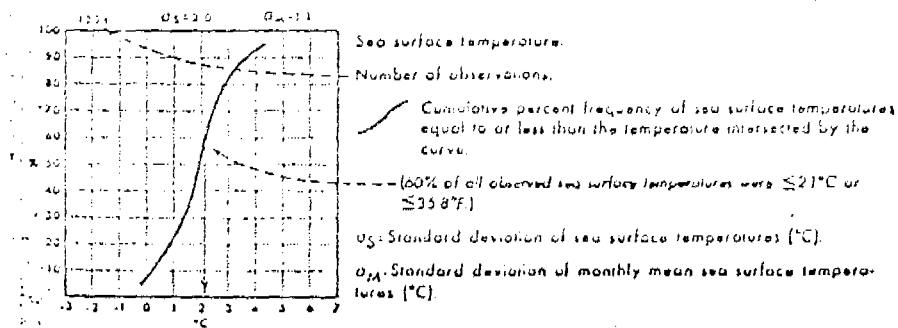 σS=2.0
100
Sea surface temperature.
90
Number of observations.
80
Cumulative percent frequency of sea surface temperatures
equal to or less than the temperature intersected by the
curve.
60
%
50
(60% of all observed sea surface temperatures were ≦2.1°C or
≦35.8°F.)
40
30
σS-Standard deviation of sea surface temperatures (°C).
20
10
σM-Standard deviation of monthly mean sea surface tempera-
tures (°C).
-3 -2 -1 0 1 2 3 4 5 6 7
°C